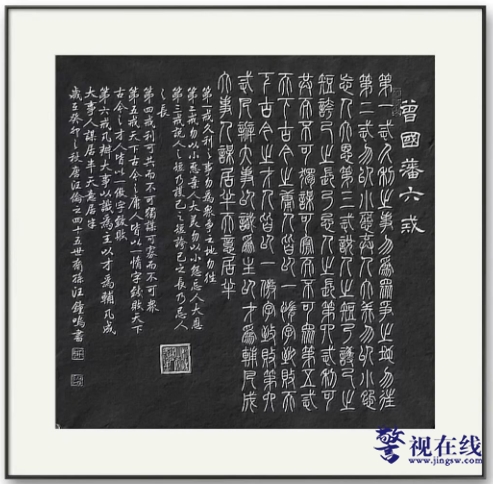 曾國藩六戒
第一戒久利之事勿為眾爭之地勿往
第二戒勿以小惡棄人大美勿以小怨
忘人大恩第三戒說人之短乃護己之
短誇己之長乃忌人之長第四戒利可
共而不可獨謀可寡而不可眾第五戒
天下古今之庸人皆以一惰字致敗天
下古今之才人皆以一傲字致敗第六
戒凡辦大事以識為主以才為輔凡成
大事人謀居半天意居半
第一戒久利之事勿為眾爭之地勿往
第二戒勿以小惡棄人大美勿以小怨忘人大恩
第三戒說人之短乃護己之短誇己之長乃忌人
之長
第四戒利可共而不可獨謀可寡而不可眾
第五戒天下古今之庸人皆以一惰字致敗天下
古今之才人皆以一傲字致敗
第六戒凡辦大事以識為主以才為輔凡成
大事人謀居半天意居半
歲至癸卯之秋唐汪倫之四十五世裔孫汪鐘鳴書
警视在线
www.jingsw.com